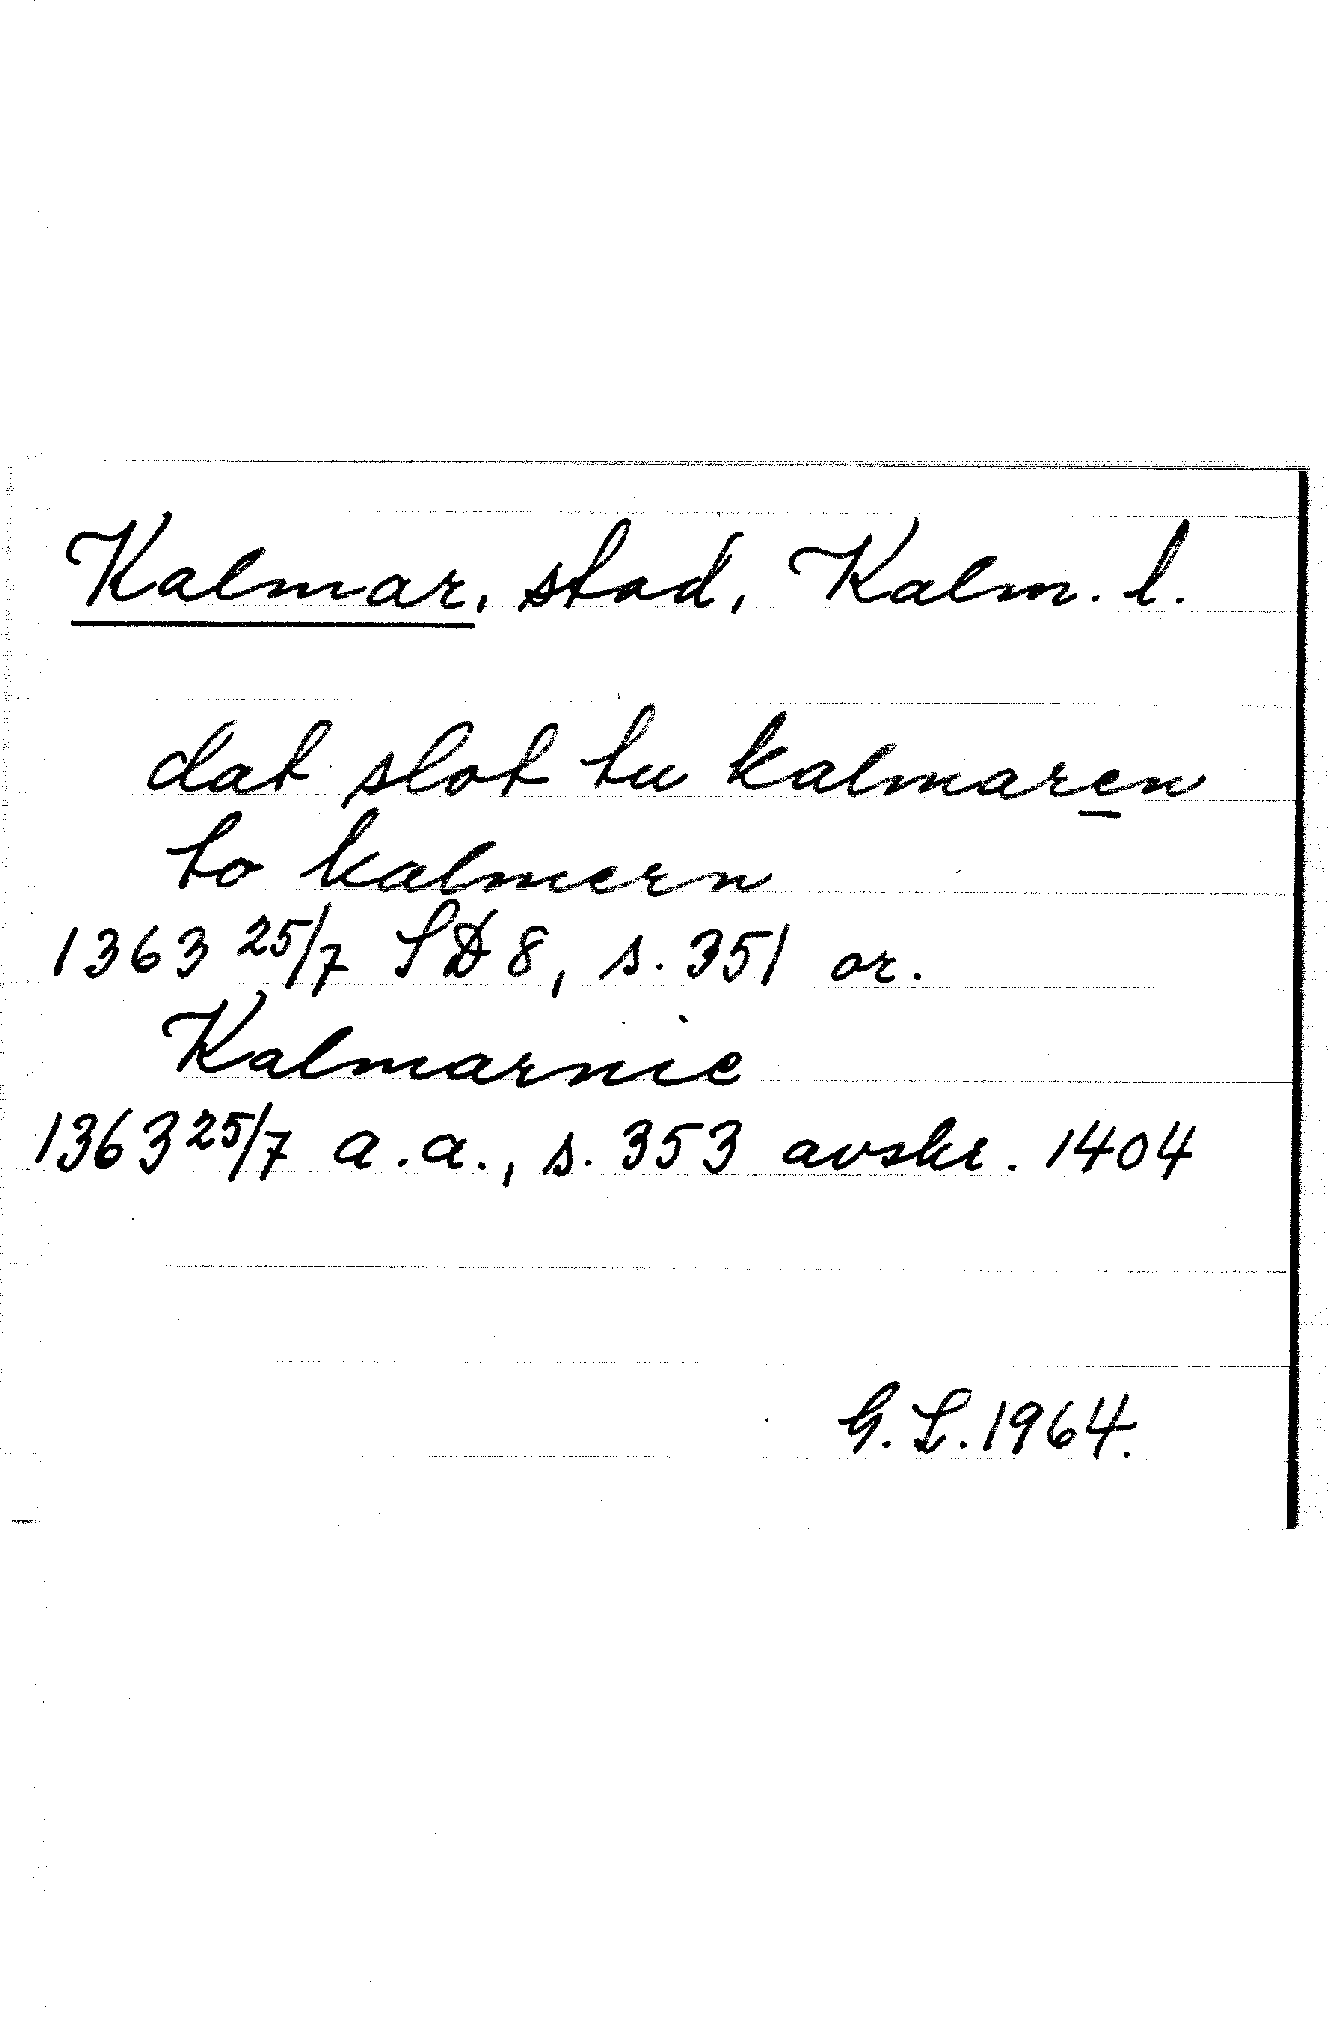 Kalmar, stad, Kalm. l.
dat slot tu kalmaren
to kalmern
1363 25/7 SD 8, s. 351 or.
Kalmarnie
1363 25/7 a.a., s. 353 avskr. 1404
G. L. 1964.